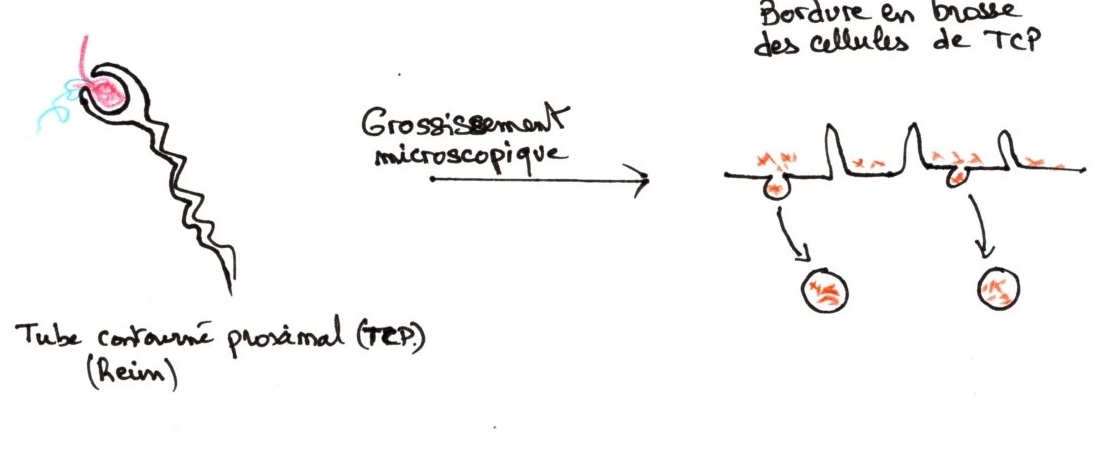 Bordure en brosse
des cellules de TCP
Grossissement
microscopique
Tube contourné proximal (TCP)
(Rein)